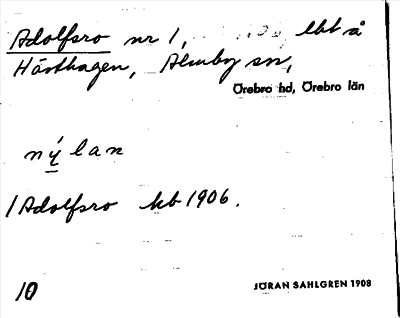 Adolfsro nr 1, lbt å
Hästhagen, Almby sn,
Örebro hd, Örebro län
nýlan
1 Adolfsro kb 1906.
10
JÖRAN SAHLGREN 1908